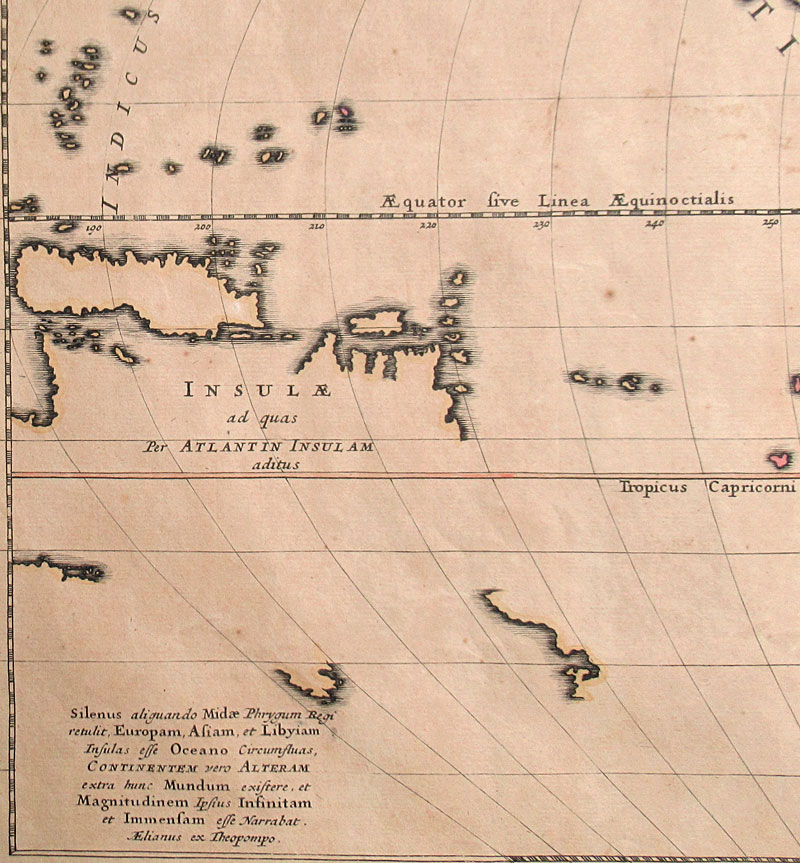 TI
INDICUS
Æquator ſive Linea Æquinoctialis
190 200 210 220 230 240 250
INSULÆ
ad quas
Per ATLANTIN INSULAM
aditus
Tropicus Capricorni
Silenus aliquando Midæ Phrygum Regi
retulit, Europam, Aſiam, et Libyiam
Inſulas eſſe Oceano Circumfluas,
CONTINENTEM vero ALTERAM
extra hunc Mundum exiſtere, et
Magnitudinem Ipſius Infinitam
et Immenſam eſſe Narrabat.
Ælianus ex Theopompo.